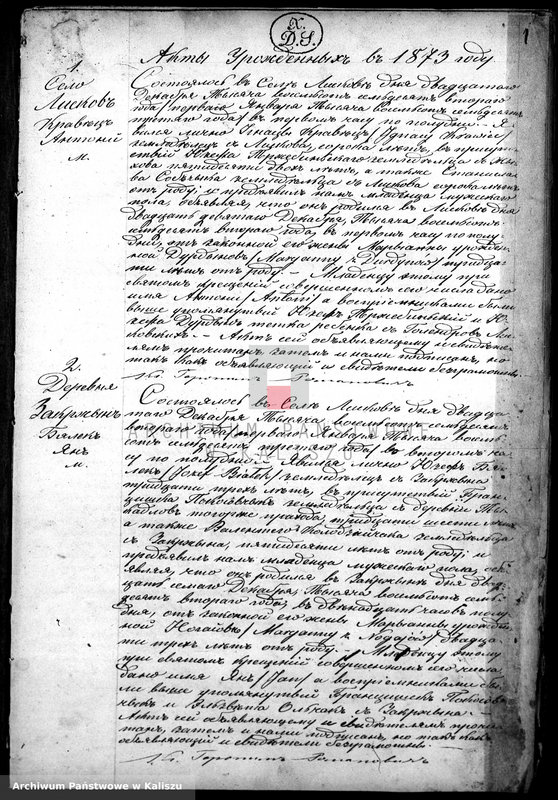 X.
D.S.
1
Акты Урожденныхъ въ 1873 году
1.
Село
Лисковъ
Кравецъ
Антоній
м.
Состоялось въ Селѣ Лисковѣ дня двадцатаго
Декабря Тысяча восемьсотъ семьдесятъ втораго
года /перваго Января Тысяча восемьсотъ семьдесятъ
третьяго года/ въ первомъ часу по полудни. Я-
вился лично Игнацы Кравецъ
земледѣлецъ съ Лискова, сорока лѣтъ, въ присут
ствіи Юзефа земледѣльца съ Лис
кова пятидесяти лѣтъ, а также Станисла
ва земледѣльца съ Лискова сорока лѣтъ
отъ роду, и предъявилъ намъ младенца мужескаго
пола объявляя, что онъ родился въ Лисковѣ дня
двадцать девятаго Декабря, Тысяча восемьсотъ
семьдесятъ втораго года, въ первомъ часу по полу
дни, отъ законной его жены Марьянны урожден
ной
ти лѣтъ отъ роду. — Младенцу этому при
святомъ крещеніи совершенномъ сего числа дано
имя Антоній /Antoni/ а воспріемниками были
выше упомянутый Юзефъ и Ю
зефа
Актъ сей объявляющему и свидѣте
лямъ прочитанъ затемъ и нами подписанъ, но
такъ какъ объявляющій и свидѣтели безграмотны
2.
Деревня
Закржынъ
Бялекъ
Янъ
м.
Состоялось въ Селѣ Лисковѣ дня двадца
таго Декабря Тысяча восемьсотъ семьдесятъ
втораго года /перваго Января Тысяча восемь
сотъ семьдесятъ третьяго года/ въ второмъ ча
су по полудни. Явился лично Юзефъ Бя
лекъ /Józef Białek/ земледѣлецъ съ Закржына
тридцати трехъ лѣтъ, въ присутствіи Фран
цишка земледѣльца съ деревни
тридцати шести лѣтъ
а также Валентего земледѣльца
съ Закржына, пятидесяти лѣтъ отъ роду; и
предъявилъ намъ младенца мужескаго пола, объ
являя, что онъ родился въ Закржынѣ дня двад
цать седмаго Декабря, Тысяча восемьсотъ семь
десятъ втораго года, въ двѣнадцать часовъ полу
дня, отъ законной его жены Марьянны урожден
ной двадца
ти трехъ лѣтъ отъ роду. Младенцу этому
при святомъ крещеніи совершенномъ сего числа
дано имя Янъ /Jan/ а воспріемниками бы
ли выше упомянутый Францишекъ
и съ Закржына
Актъ сей объявляющему и свидѣтелямъ прочи
танъ, затемъ и нами подписанъ, но такъ какъ
объявляющій и свидѣтели безграмотны
ARCHIWUM PAŃSTWOWE
W KALISZU
Archiwum Państwowe w Kaliszu